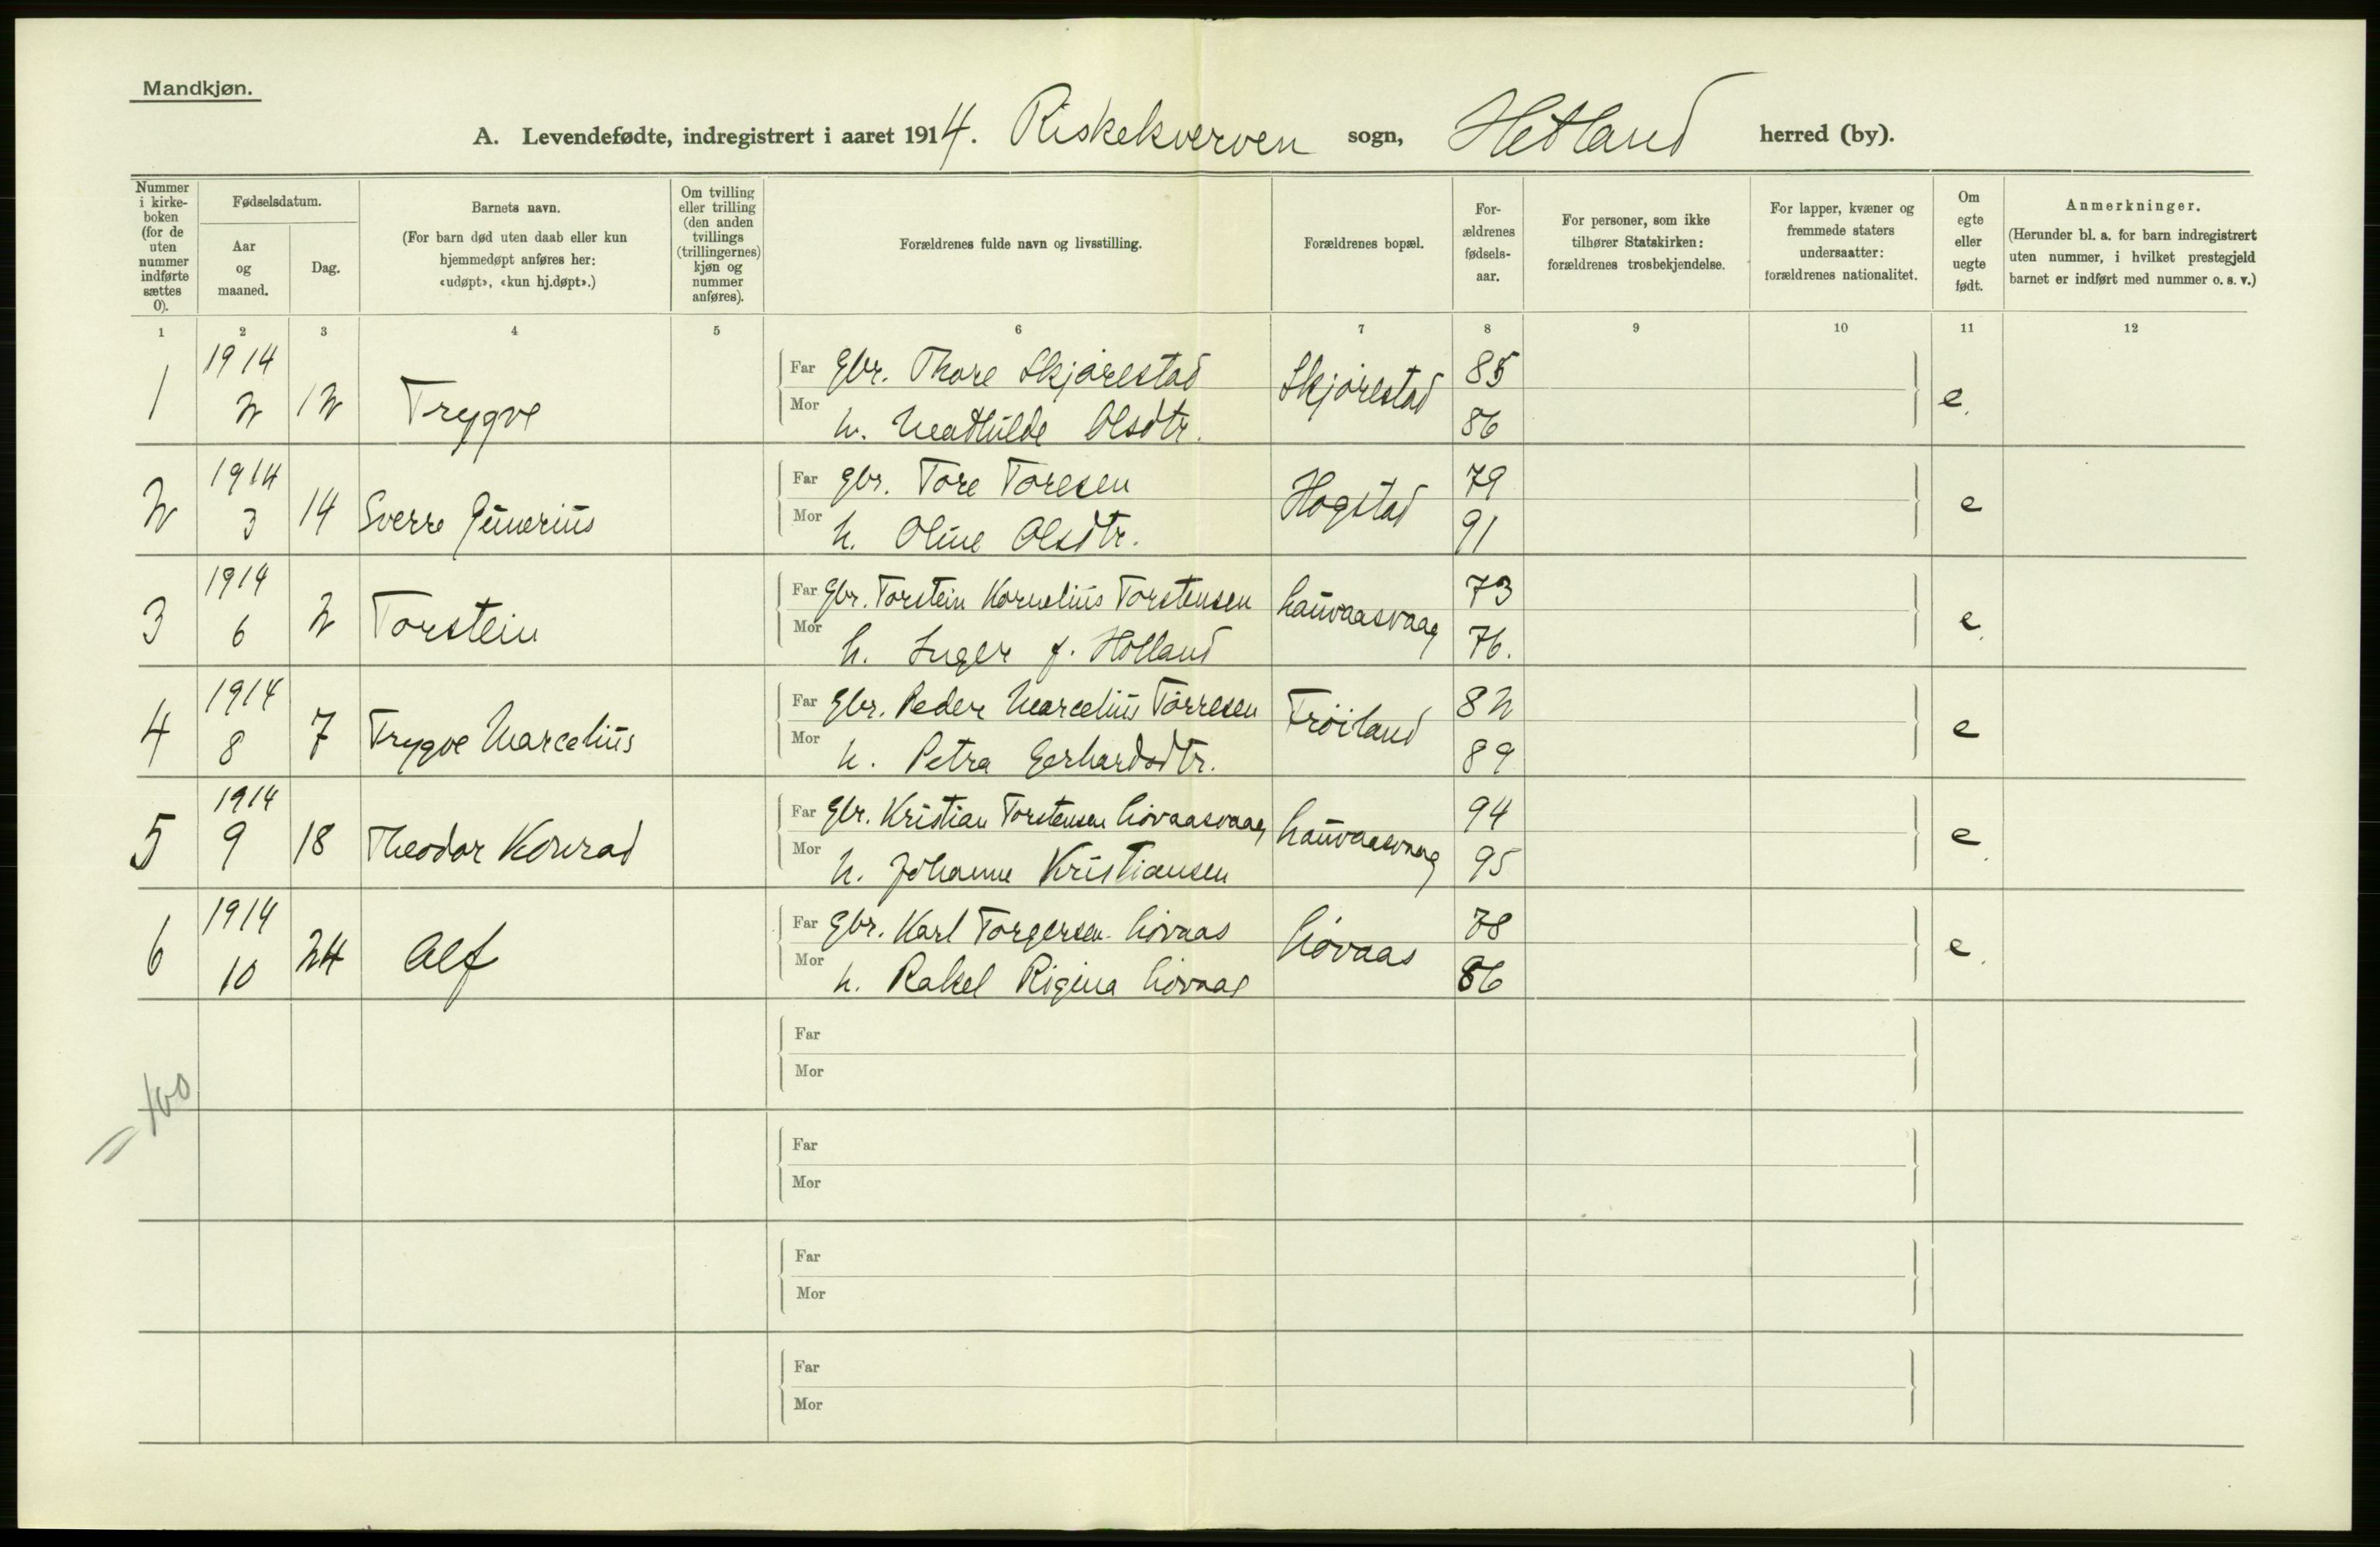 Mandkjøn.
A. Levendefødte, indregistrert i aaret 1914. Riskekverven sogn, Hetland herred (by).
Nummer i kirke-boken (for de uten nummer indførte sættes 0).
Fødselsdatum.
Aar og maaned.
Dag.
Barnets navn.
(For barn død uten daab eller kun hjemmedøpt anføres her: «udøpt», «kun hj.døpt».)
Om tvilling eller trilling (den anden tvillings (trillingernes) kjøn og nummer anføres).
Forældrenes fulde navn og livsstilling.
Forældrenes bopæl.
For-ældrenes fødsels-aar.
For personer, som ikke tilhører Statskirken: forældrenes trosbekjendelse.
For lapper, kvæner og fremmede staters undersaatter: forældrenes nationalitet.
Om egte eller uegte født.
Anmerkninger.
(Herunder bl. a. for barn indregistrert uten nummer, i hvilket prestegjeld barnet er indført med nummer o. s. v.)
1 2 3 4 5 6 7 8 9 10 11 12
1 1914 2 12 Trygve
Far Gbr. Thore Skjørestad Skjørestad 85 e.
Mor h. Mathilde Olsdtr. 86
2 1914 3 14 Sverre
Far gbr. Tore Toresen Hogstad 79 e
Mor h. Oline Olsdtr. 91
3 1914 6 2 Torstein
Far Gbr. Torstein Kornelius Torstensen Lauvaasvaag 73 e.
Mor h. Inger f. Holland 76.
4 1914 8 7 Trygve Marcelius
Far Gbr. Peder Marcelius Torresen Frøiland 82 e
Mor h. Petra Gerhardsdtr. 89
5 1914 9 18 Theodor Konrad
Far Gbr. Kristian Torstensen Løvaasvaag Lauvaasvaag 94 e.
Mor h. Johanne Kristiansen 95
6 1914 10 24 Alf
Far Gbr. Karl Torgersen Løvaas Løvaas 78 e.
Mor h. Rakel Rigina Løvaas 86
Far
Mor
Far
Mor
Far
Mor
Far
Mor